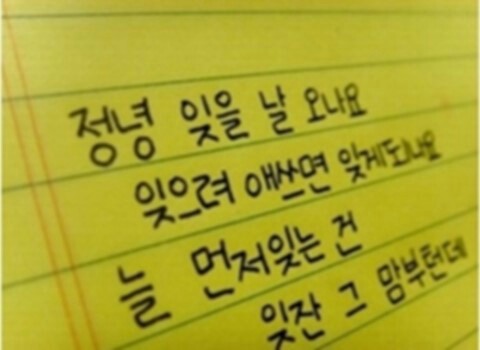 정녕 잊을 날 오나요
잊으려 애쓰면 잊게되나요
늘 먼저잊는 건
잊잔 그 맘부턴데